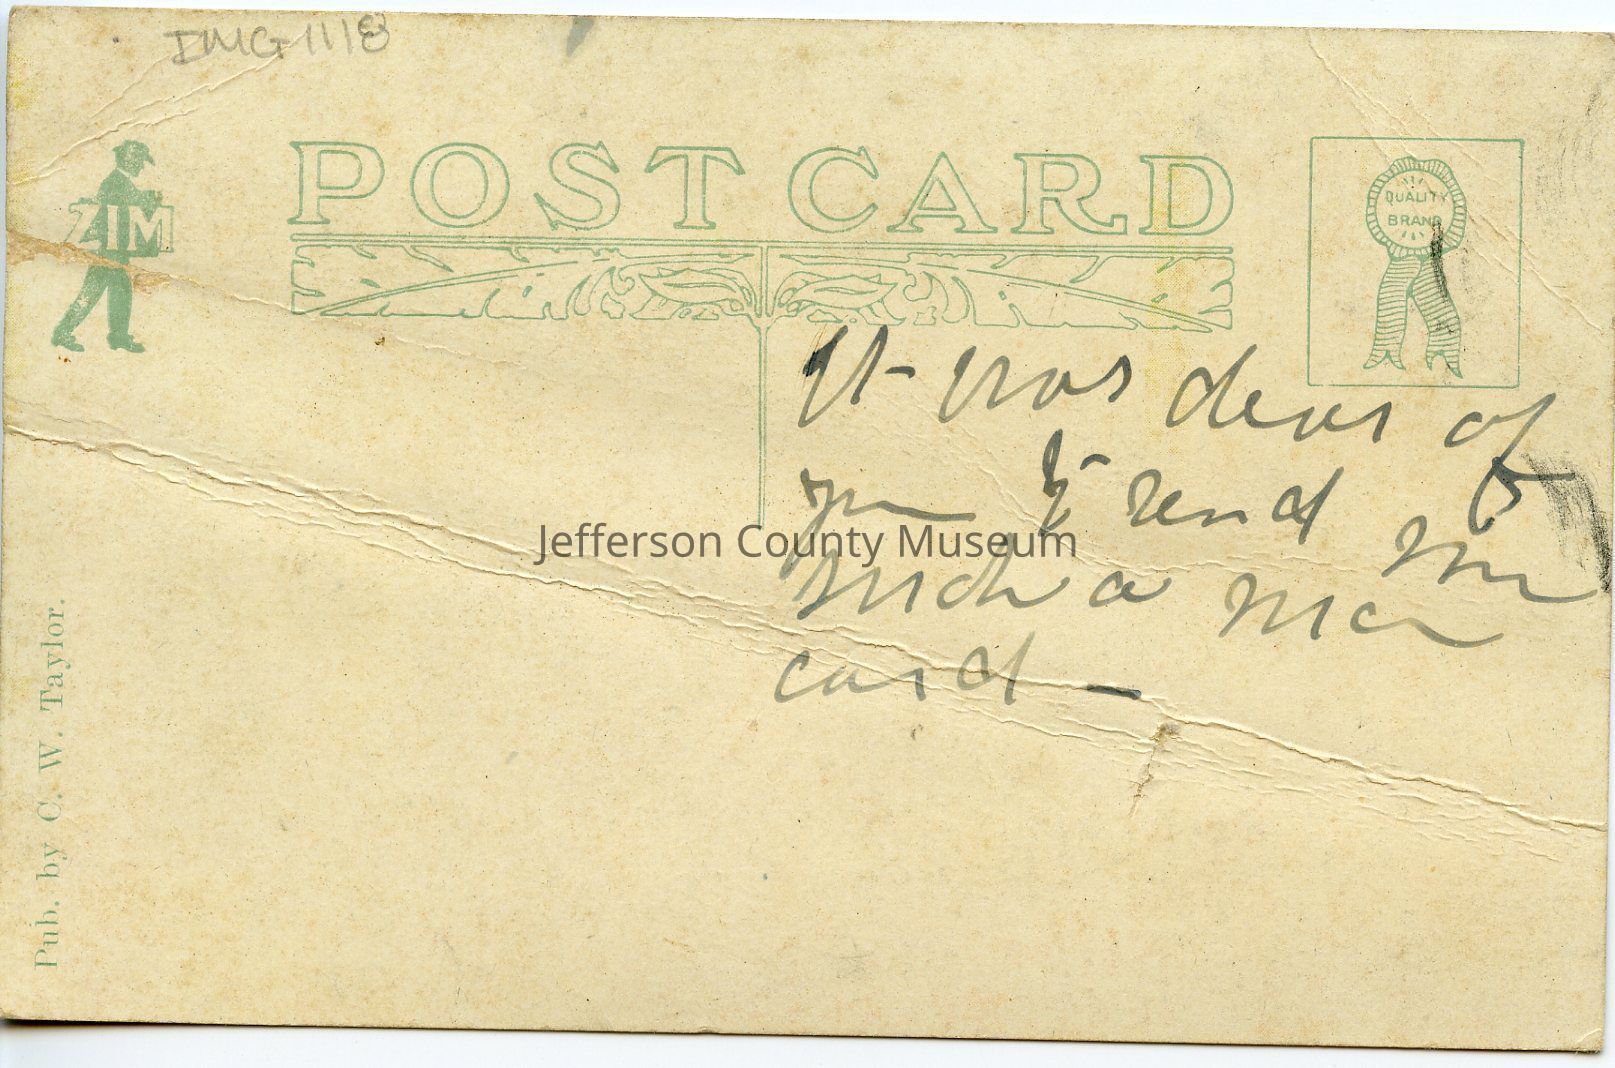 IMG1118
ZIM
POST CARD
QUALITY
BRAND
It was dear of
you to send me
such a nice
card —
Jefferson County Museum
Pub. by C. W. Taylor.